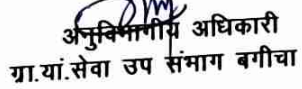 अनुविभागीय अधिकारी
ग्रा.यां.सेवा उप संभाग बगीचा